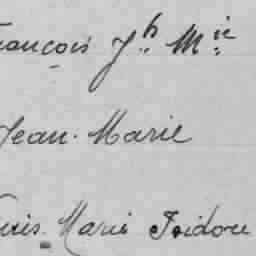 François Jh Mie
Jean-Marie
Louis Marie Isidore